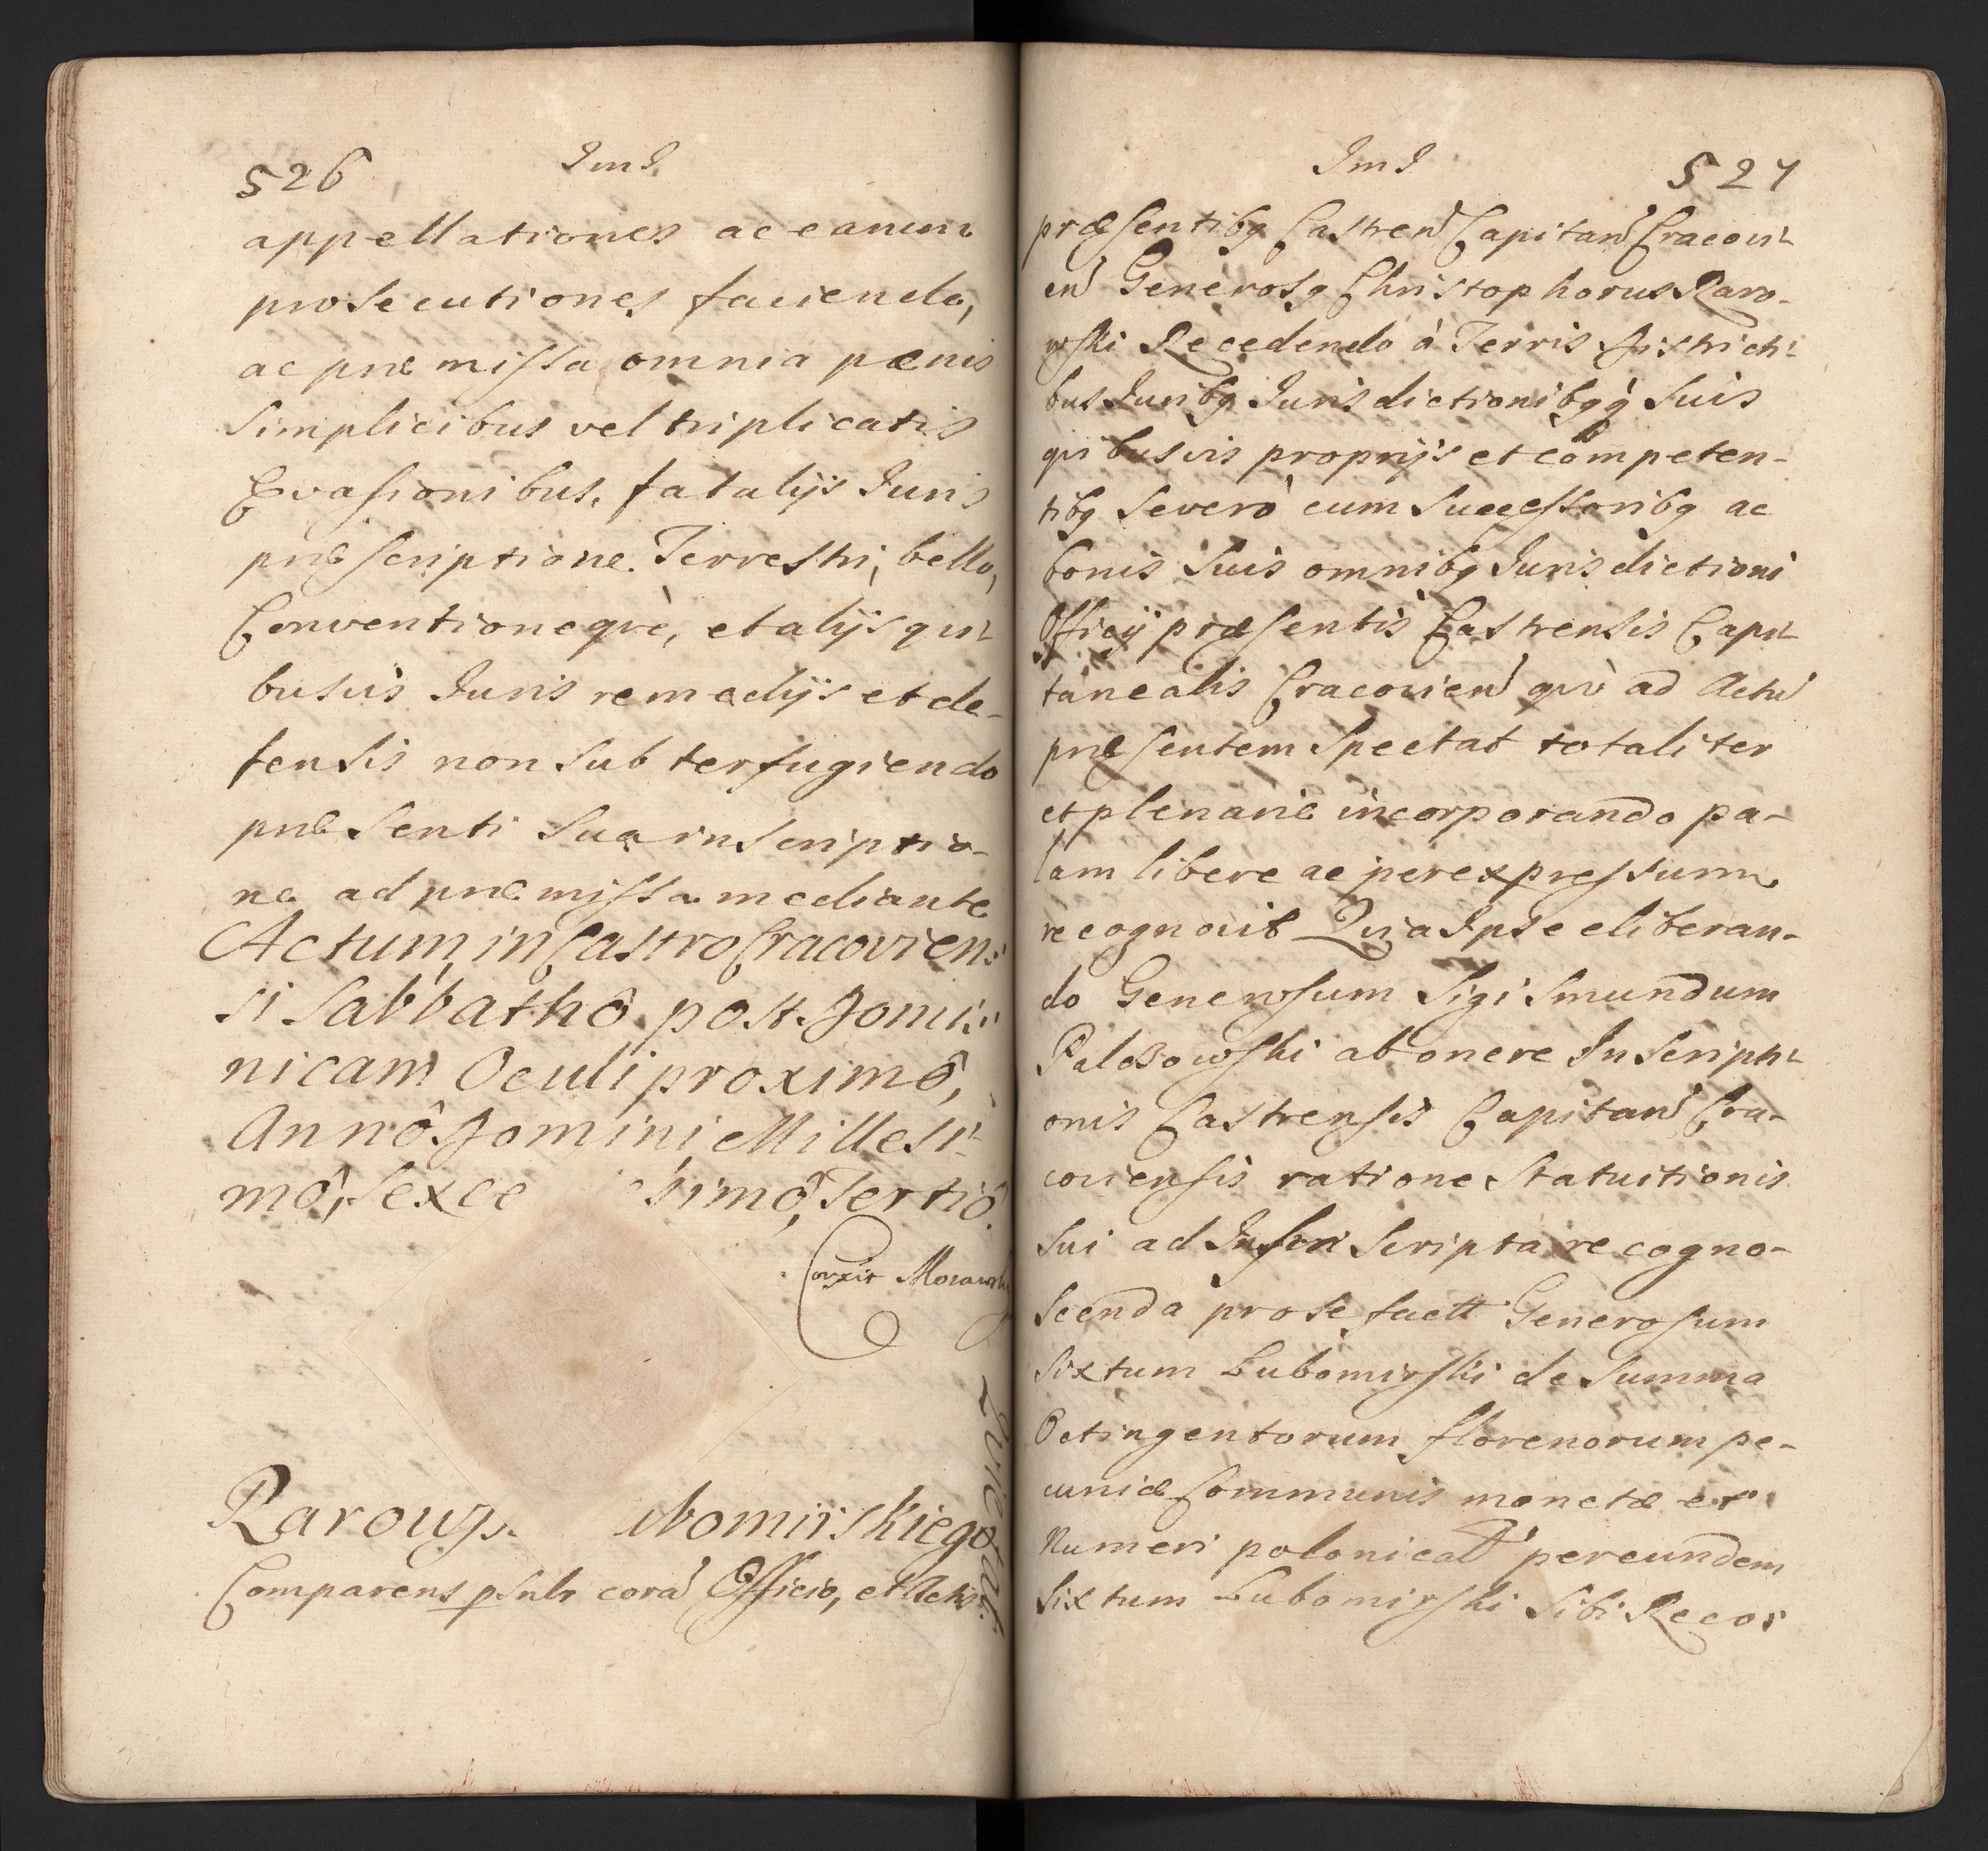 526 JmJ
appellationes ac earum
prosecutiones faciendo,
ac præmissa omnia pœnis
simplicibus vel triplicatis
Evasionibus, fatalijs Juris
præscriptione Terrestri, bello,
Conventioneque, et alijs qui
busvis Juris remedijs et de-
fensis non subterfugiendo
præsenti sua inscriptio-
ne ad præmissa mediante
Actum in Castro Cracovien
si Sabbathô post Domi
nicam Oculi proximô,
Annô Domini Millesi-
mô, Sexce simô, Tertiô.
Corexit
Quietat
Rarows omirskiego
Comparens psntr corā Officio, et Actis
JmJ 527
præsentibq Castren Capitan Cracovi
en Generosq Christophorus Raro-
wski Recedendo à Terris Districti
bus Juribq Jurisdictionibqq suis
quibusvis proprijs et competen-
tibq severò cum Successoribq ac
bonis suis omnibq Jurisdictioni
Officij præsentis Castrensis Capi
tanealis Cracovien quò ad Actū
præsentem spectat totaliter
et plenarie incorporando pa-
lam libere ac per expressum
recognovit Quia Ipse eliberan-
do Generosum Sigismundum
Palczowski ab onere Inscripti
onis Castrensis Capitan Cra-
coviensis ratione Statuitionis
sui ad Infra scripta recogno-
scenda pro se factt Generosum
Sixtum Lubomirski de Summa
Octingentorum florenorum pe-
cuniæ Communis monetæ et
Numeri polonicalt per eundem
Sixtum Lubomirski Sibi Recog